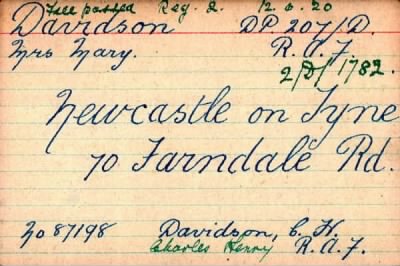 File passed Reg. 2. 12.6.20
Davidson DP 207/D.
Mrs Mary. R.A.F.
2/D/1782.
Newcastle on Tyne
70 Farndale Rd.
No 87198 Davidson, C. H.
Charles Henry R.A.F.